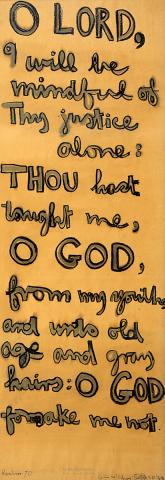 O LORD,
I will be
mindful of
Thy justice
alone:
THOU hast
taught me,
O GOD,
from my youth,
and unto old
age and gray
hairs: O GOD
forsake me not.